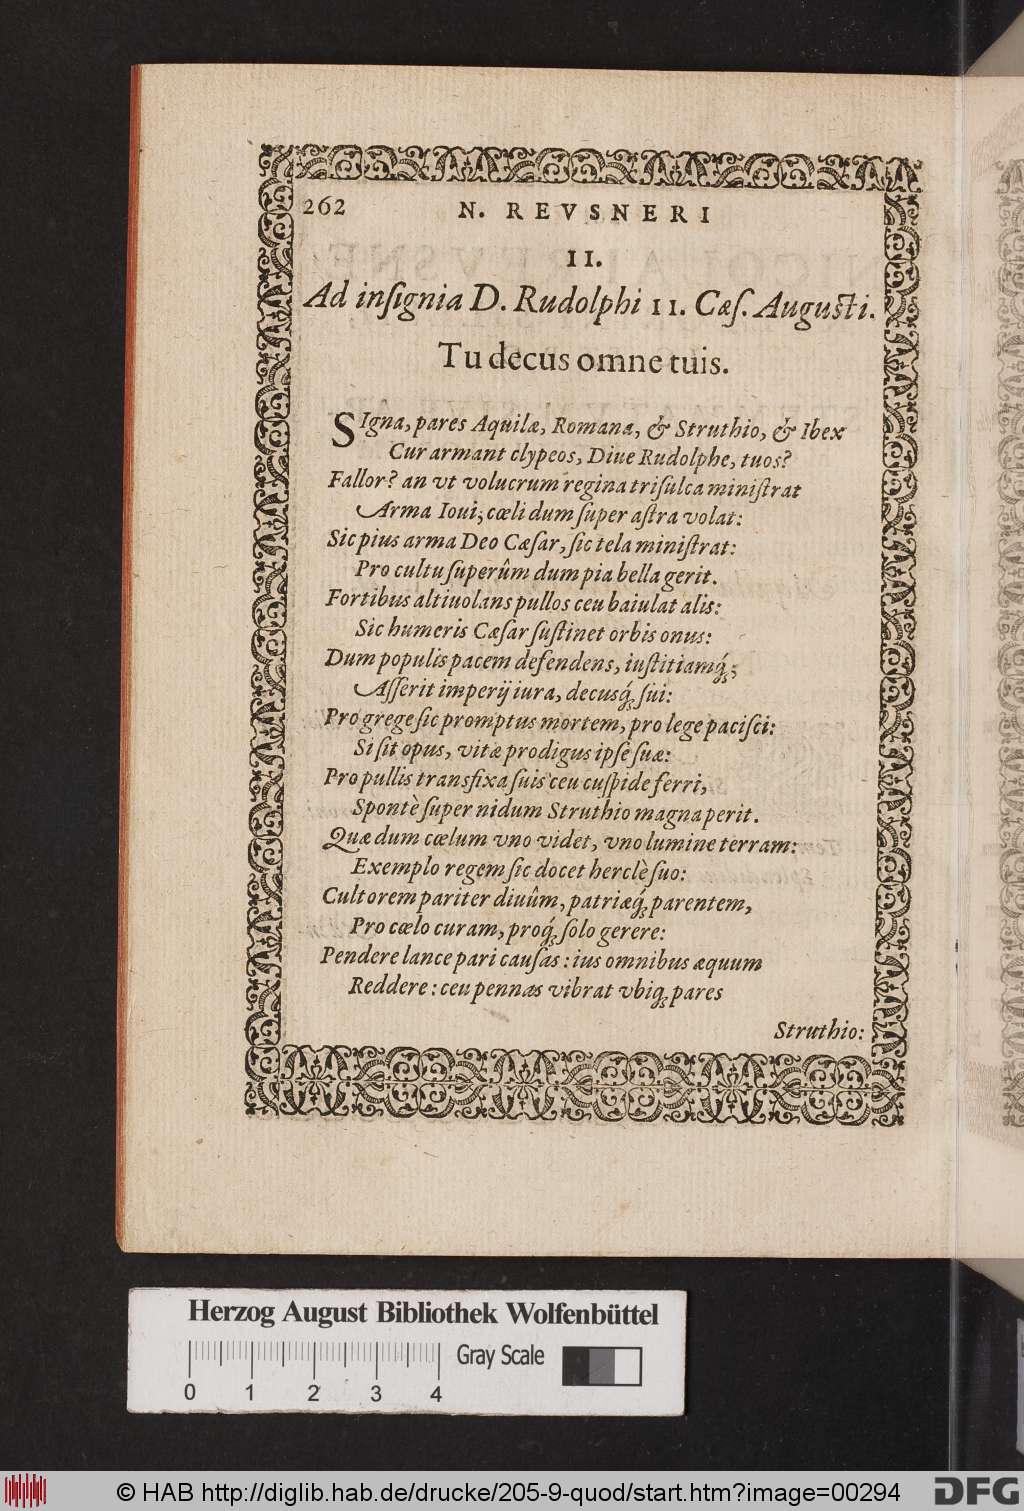 262 N. REVSNERI
II.
Ad inſignia D. Rudolphi II. Cæſ. Auguſti.
Tu decus omne tuis.
SIgna, pares Aquilæ, Romana, & Struthio, & Ibex
Cur armant clypeos, Diue Rudolphe, tuos?
Fallor? an vt volucrum regina triſulca miniſtrat
Arma Ioui; cœli dum ſuper aſtra volat:
Sic pius arma Deo Cæſar, ſic tela miniſtrat:
Pro cultu ſuperûm dum pia bella gerit.
Fortibus altiuolans pullos ceu baiulat alis:
Sic humeris Cæſar ſuſtinet orbis onus:
Dum populis pacem defendens, iuſtitiamq́;;
Aſſerit imperij iura, decusq́; ſui:
Pro grege ſic promptus mortem, pro lege paciſci:
Si ſit opus, vitæ prodigus ipſe ſuæ:
Pro pullis transfixa ſuis ceu cuſpide ferri,
Spontè ſuper nidum Struthio magna perit.
Quæ dum cœlum vno videt, vno lumine terram:
Exemplo regem ſic docet herclè ſuo:
Cultorem pariter diuûm, patriæq́; parentem,
Pro cœlo curam, proq́; ſolo gerere:
Pendere lance pari cauſas: ius omnibus æquum
Reddere: ceu pennas vibrat vbiq; pares
Struthio:
Herzog August Bibliothek Wolfenbüttel
Gray Scale
0 1 2 3 4
© HAB http://diglib.hab.de/drucke/205-9-quod/start.htm?image=00294
DFG